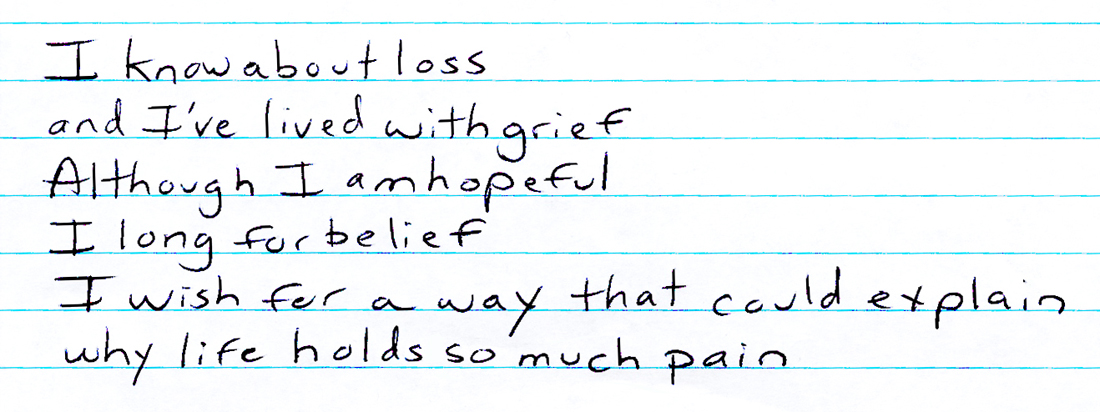 I know about loss
and I've lived with grief
Although I am hopeful
I long for belief
I wish for a way that could explain
why life holds so much pain